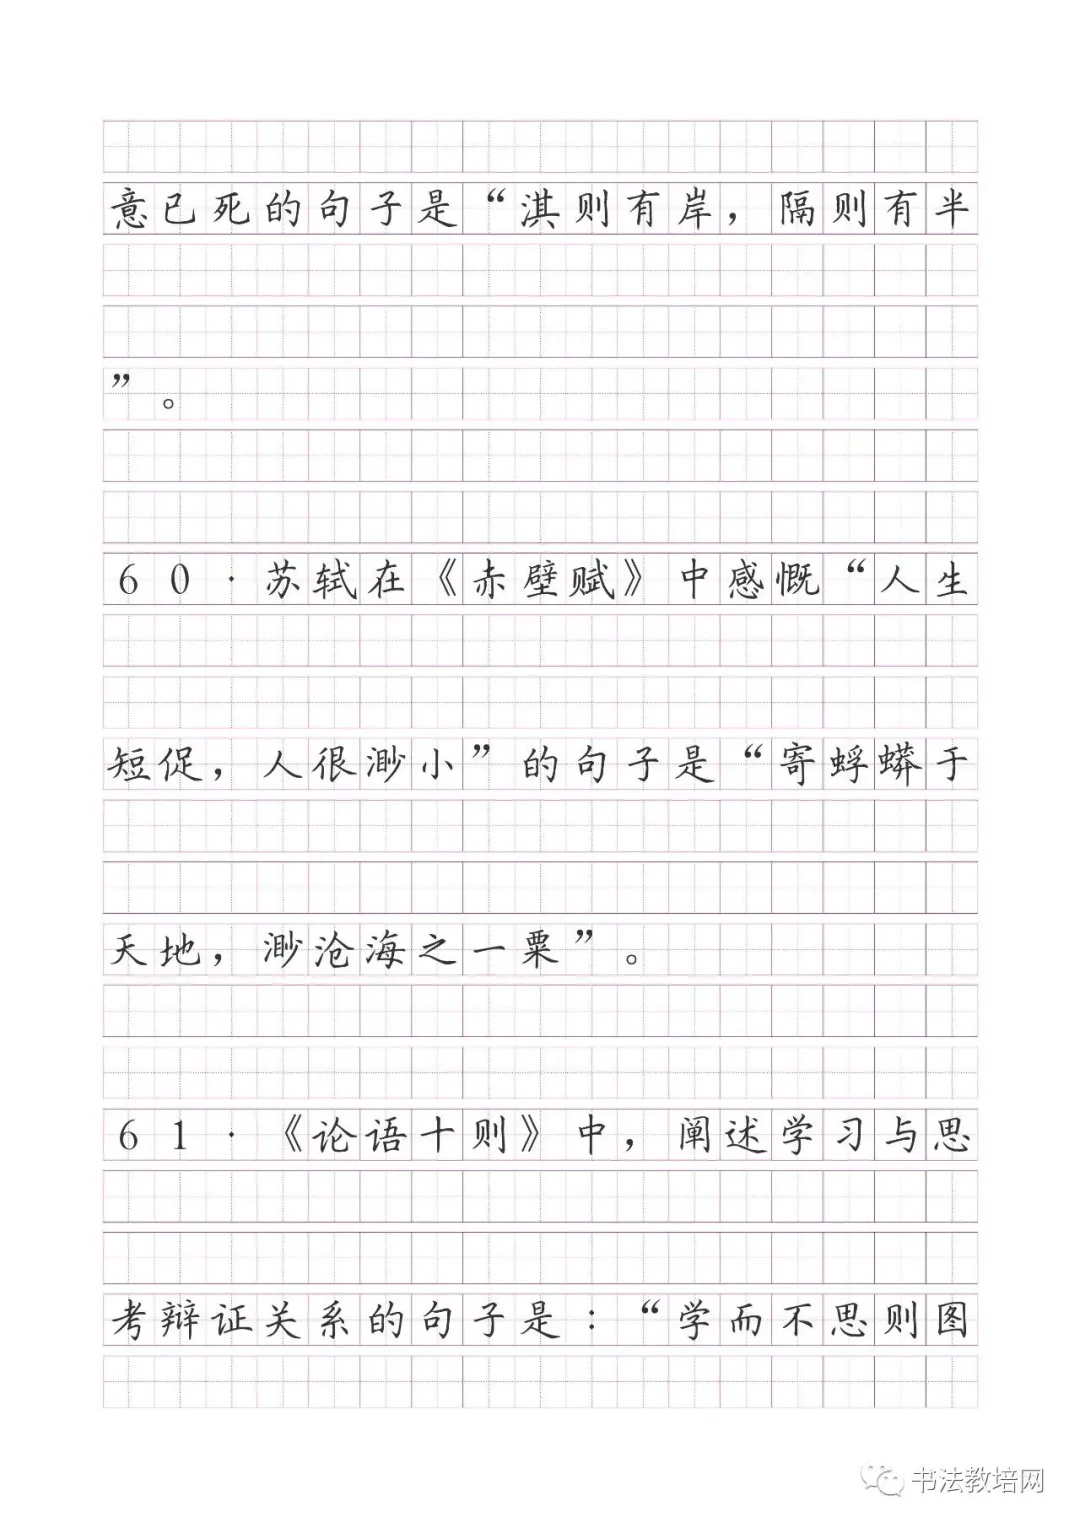 意已死的句子是“淇则有岸，隔则有半
”。
60·苏轼在《赤壁赋》中感慨“人生
短促，人很渺小”的句子是“寄蜉蟒于
天地，渺沧海之一粟”。
61·《论语十则》中，阐述学习与思
考辩证关系的句子是：“学而不思则图
书法教培网